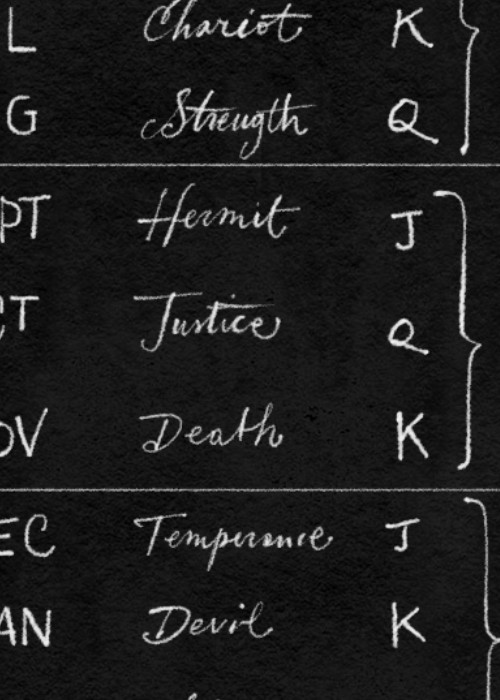 L Chariot K
G Strength Q
PT Hermit J
CT Justice Q
OV Death K
EC Temperance J
AN Devil K